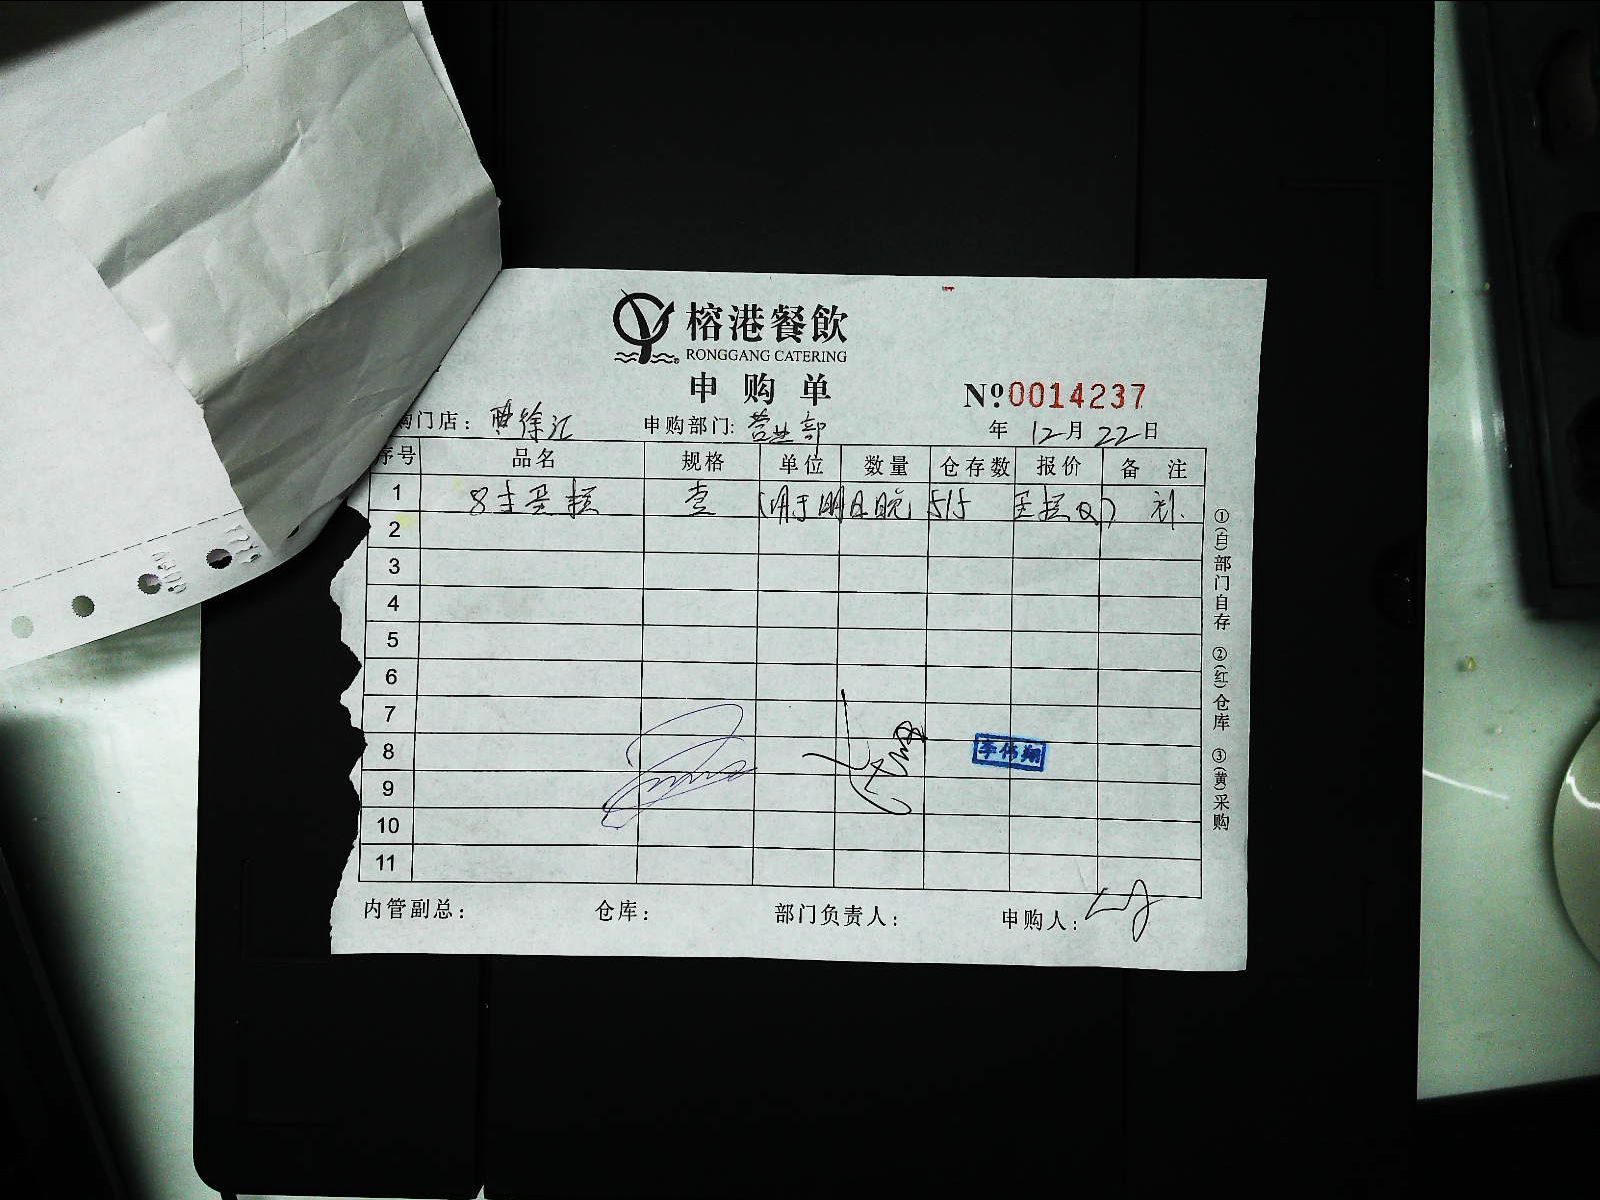 榕港餐飲
RONGGANG CATERING
申购单
Nº0014237
购门店： 徐汇 申购部门: 营业部 年 12月22日
序号 品名 规格 单位 数量 仓存数 报价 备注
1 8寸蛋糕 壹 (用于明日晚 515 蛋糕
2
3
4
5
6
7
8 李伟翔
9
10
11
内管副总： 仓库： 部门负责人： 申购人：
①(白)部门自存 ②(红)仓库 ③(黄)采购